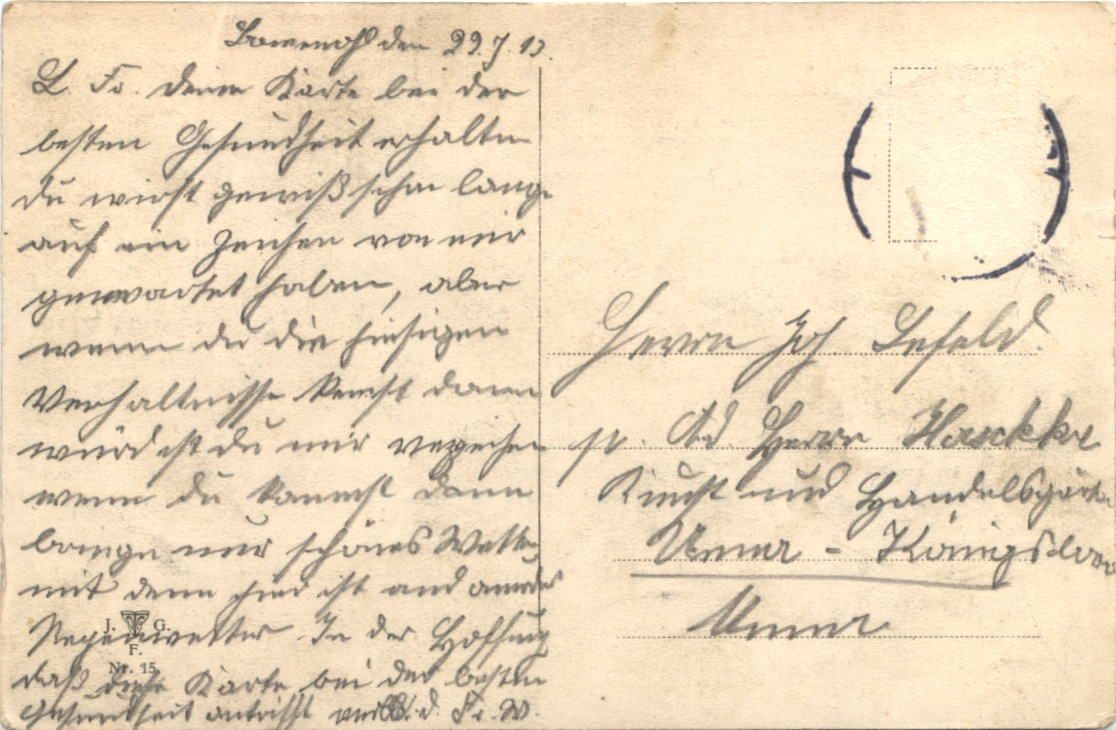 den 29.7.13.
L. Fr. Deine Karte bei der
besten Gesundheit erhalten
du wirst gewiß schon lange
auf ein Zeichen von mir
gewartet haben, aber
wenn du die hiesigen
Verhältnisse kennst dann
würdest du mir verzeihen
wenn du kannst dann
bringe mir schönes Wetter
mit denn hier ist
Regenwetter. In der Hoffnung
daß diese Karte bei der besten
Gesundheit antrifft verbl. d. Fr. W.
J. G.
F.
Nr. 15.
Herrn Joh. Lefeld.
p. Ad. Herrn
Kunst und Handelsgärt.
Unna - Königsborn
Unna